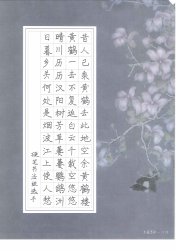 昔人已乘黄鹤去此地空余黄鹤楼
黄鹤一去不复返白云千载空悠悠
晴川历历汉阳树芳草萋萋鹦鹉洲
日暮乡关何处是烟波江上使人愁